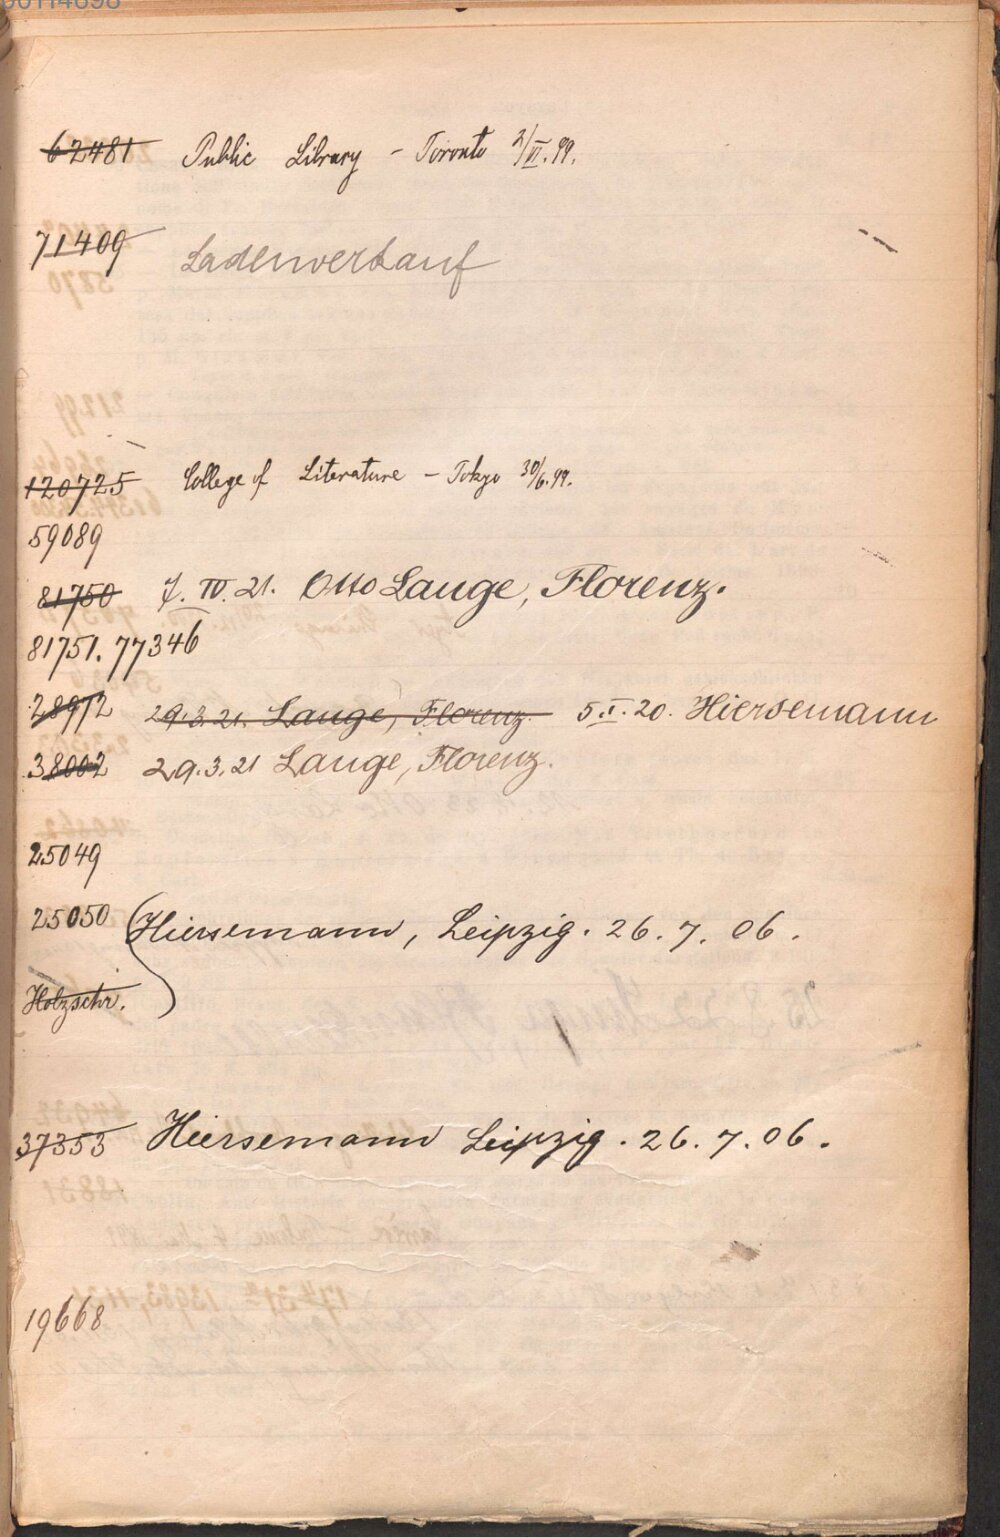 62481 Public Library - Toronto 2/VI.99.
71409 Ladenverkauf
120725 College of Literature - Tokyo 30/6.99.
59089
81750 7. IV. 21. Otto Lange, Florenz.
81751. 77346
28972 29.3.21. Lange, Florenz. 5.I.20. Hiersemann
38002 29.3.21 Lange, Florenz.
25049
25050 Hiersemann, Leipzig. 26. 7. 06.
Holzschr.
37353 Hiersemann Leipzig. 26. 7. 06.
19668